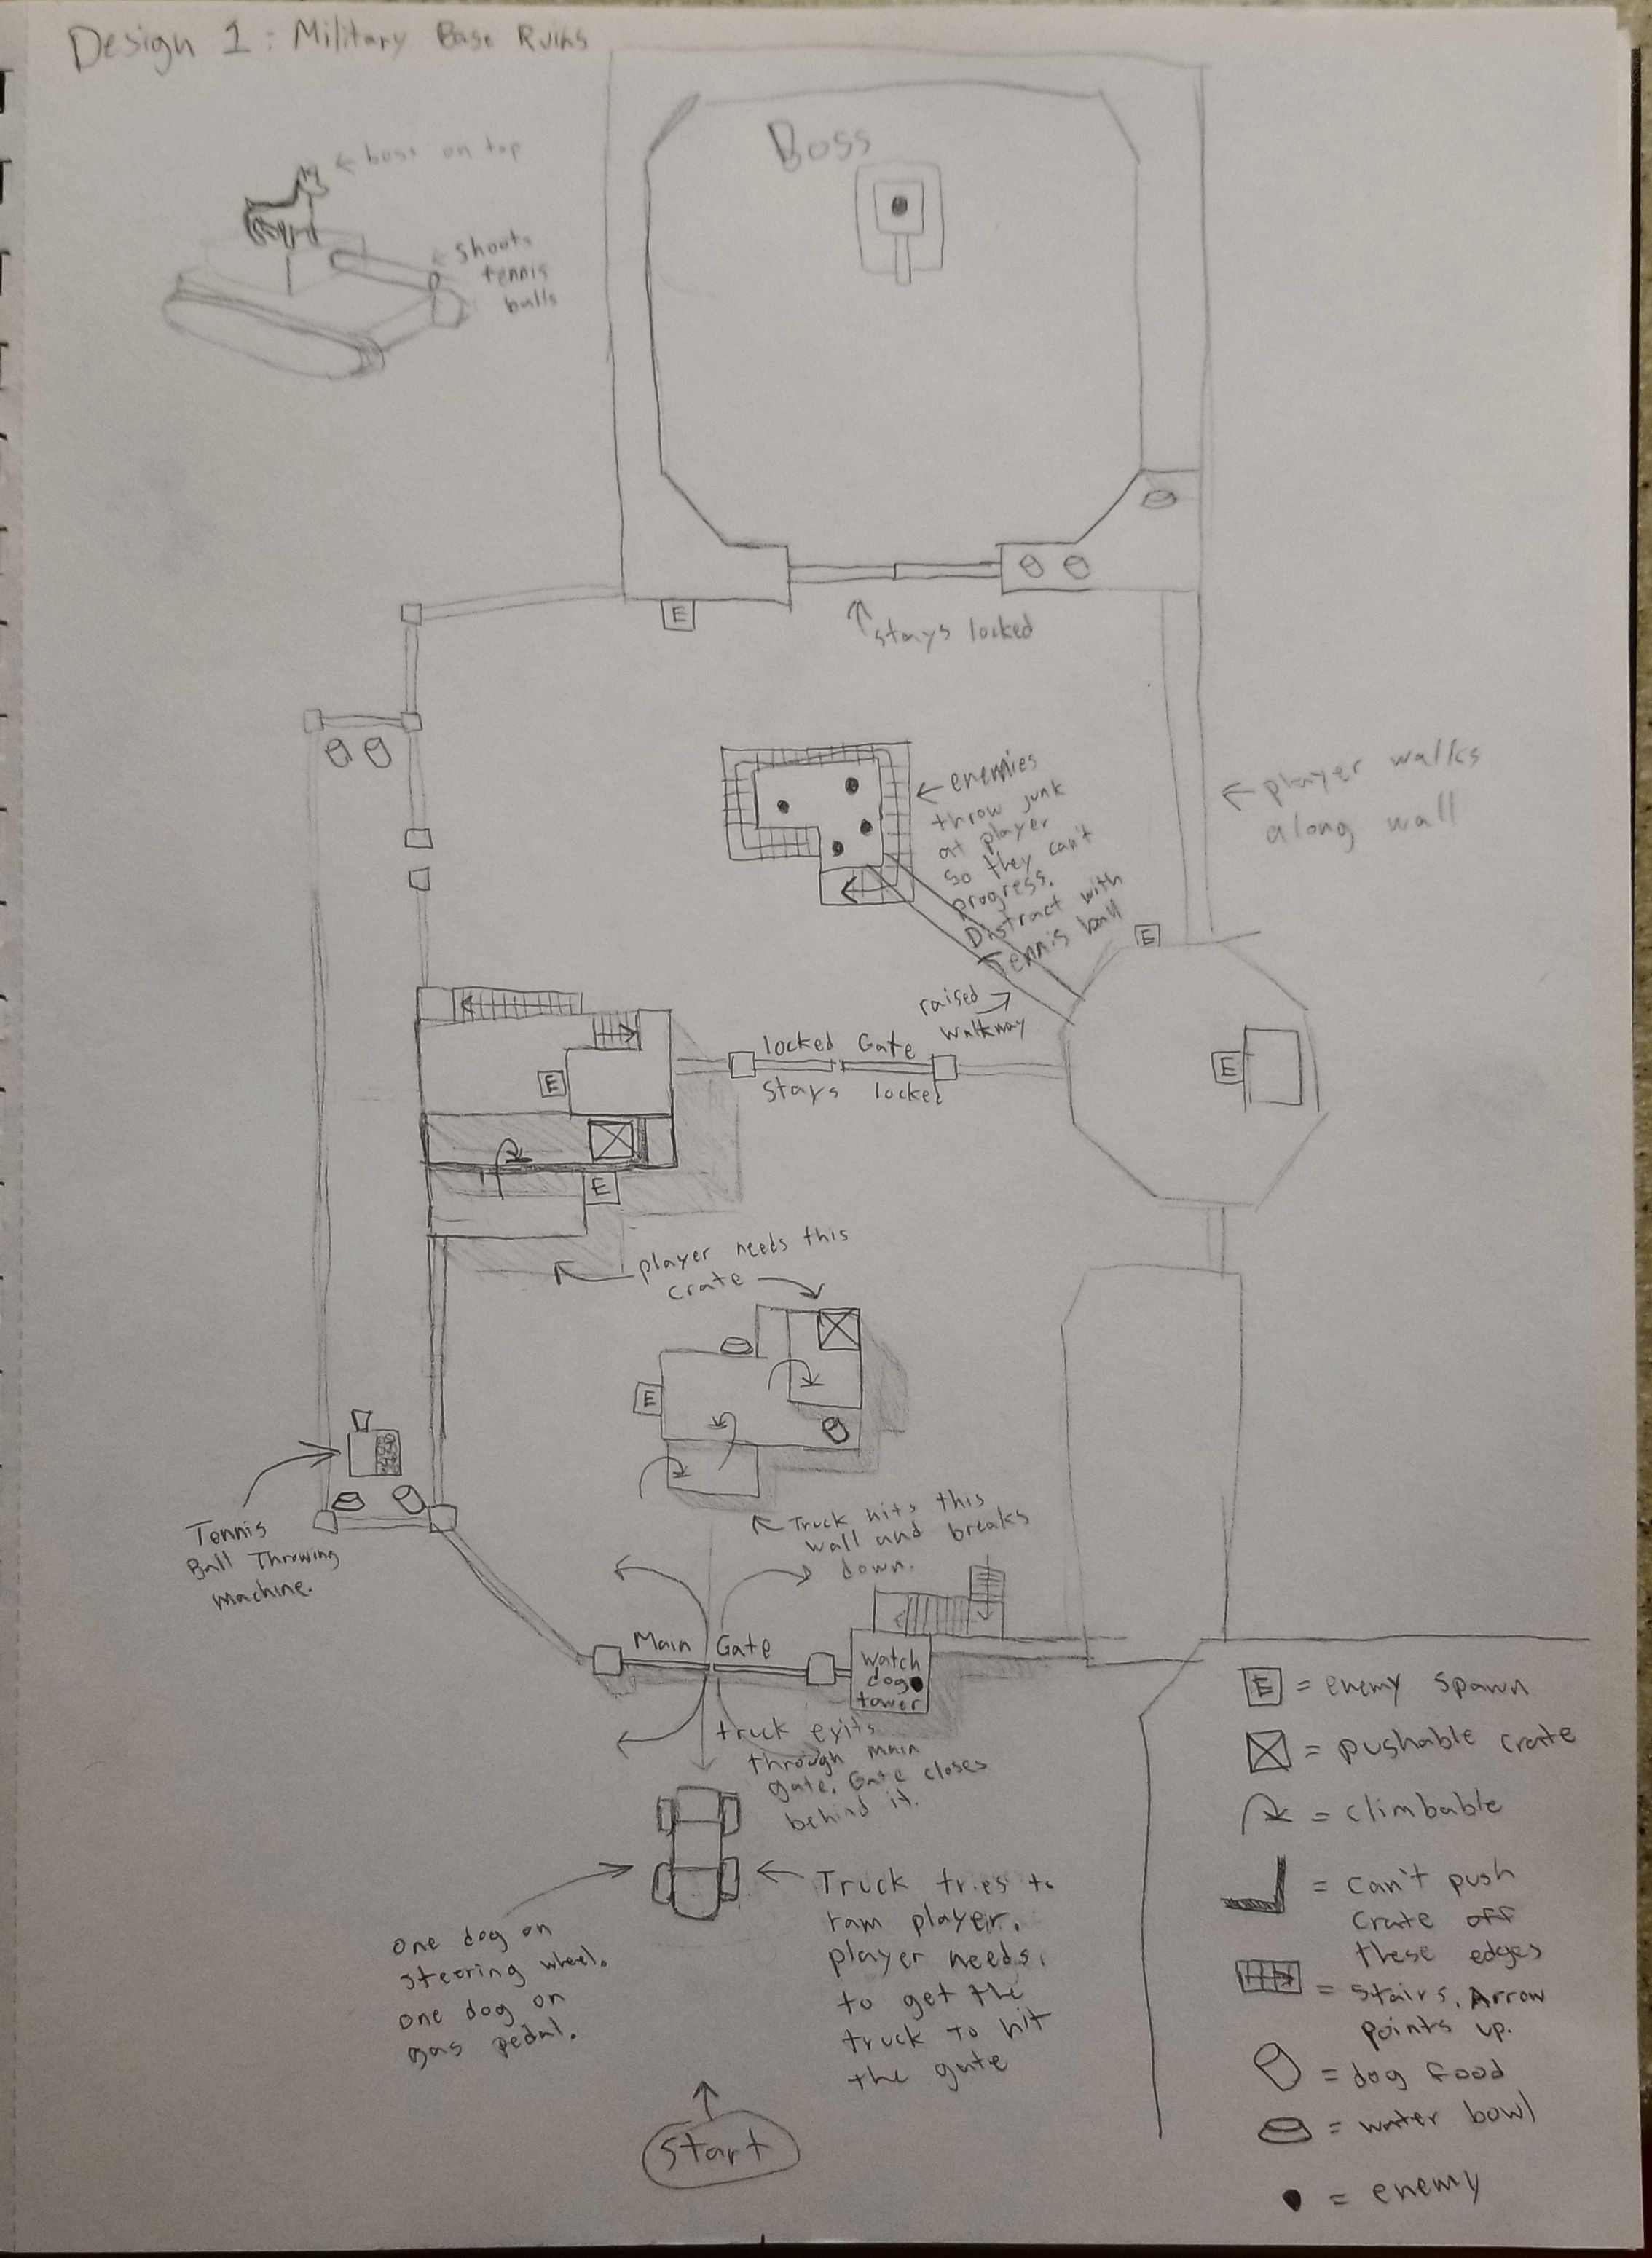 Design 1: Military Base Ruins
boss on top
shoots
tennis
balls
Boss
E
stays locked
enemies
throw junk
at player
so they can't
progress.
Distract with
Tennis ball
player walks
along wall
E
raised
walkway
locked Gate
stays locked
E
E
E
player needs this
crate
E
Tennis
Ball Throwing
machine.
Truck hits this
wall and breaks
down.
Main Gate
watch
dog
tower
truck exits
through main
gate. Gate closes
behind it.
one dog on
steering wheel.
one dog on
gas pedal.
Truck tries to
ram player.
player needs
to get the
truck to hit
the gate
Start
E = enemy spawn
= pushable crate
= climbable
= can't push
crate off
these edges
= stairs. Arrow
points up.
= dog food
= water bowl
= enemy